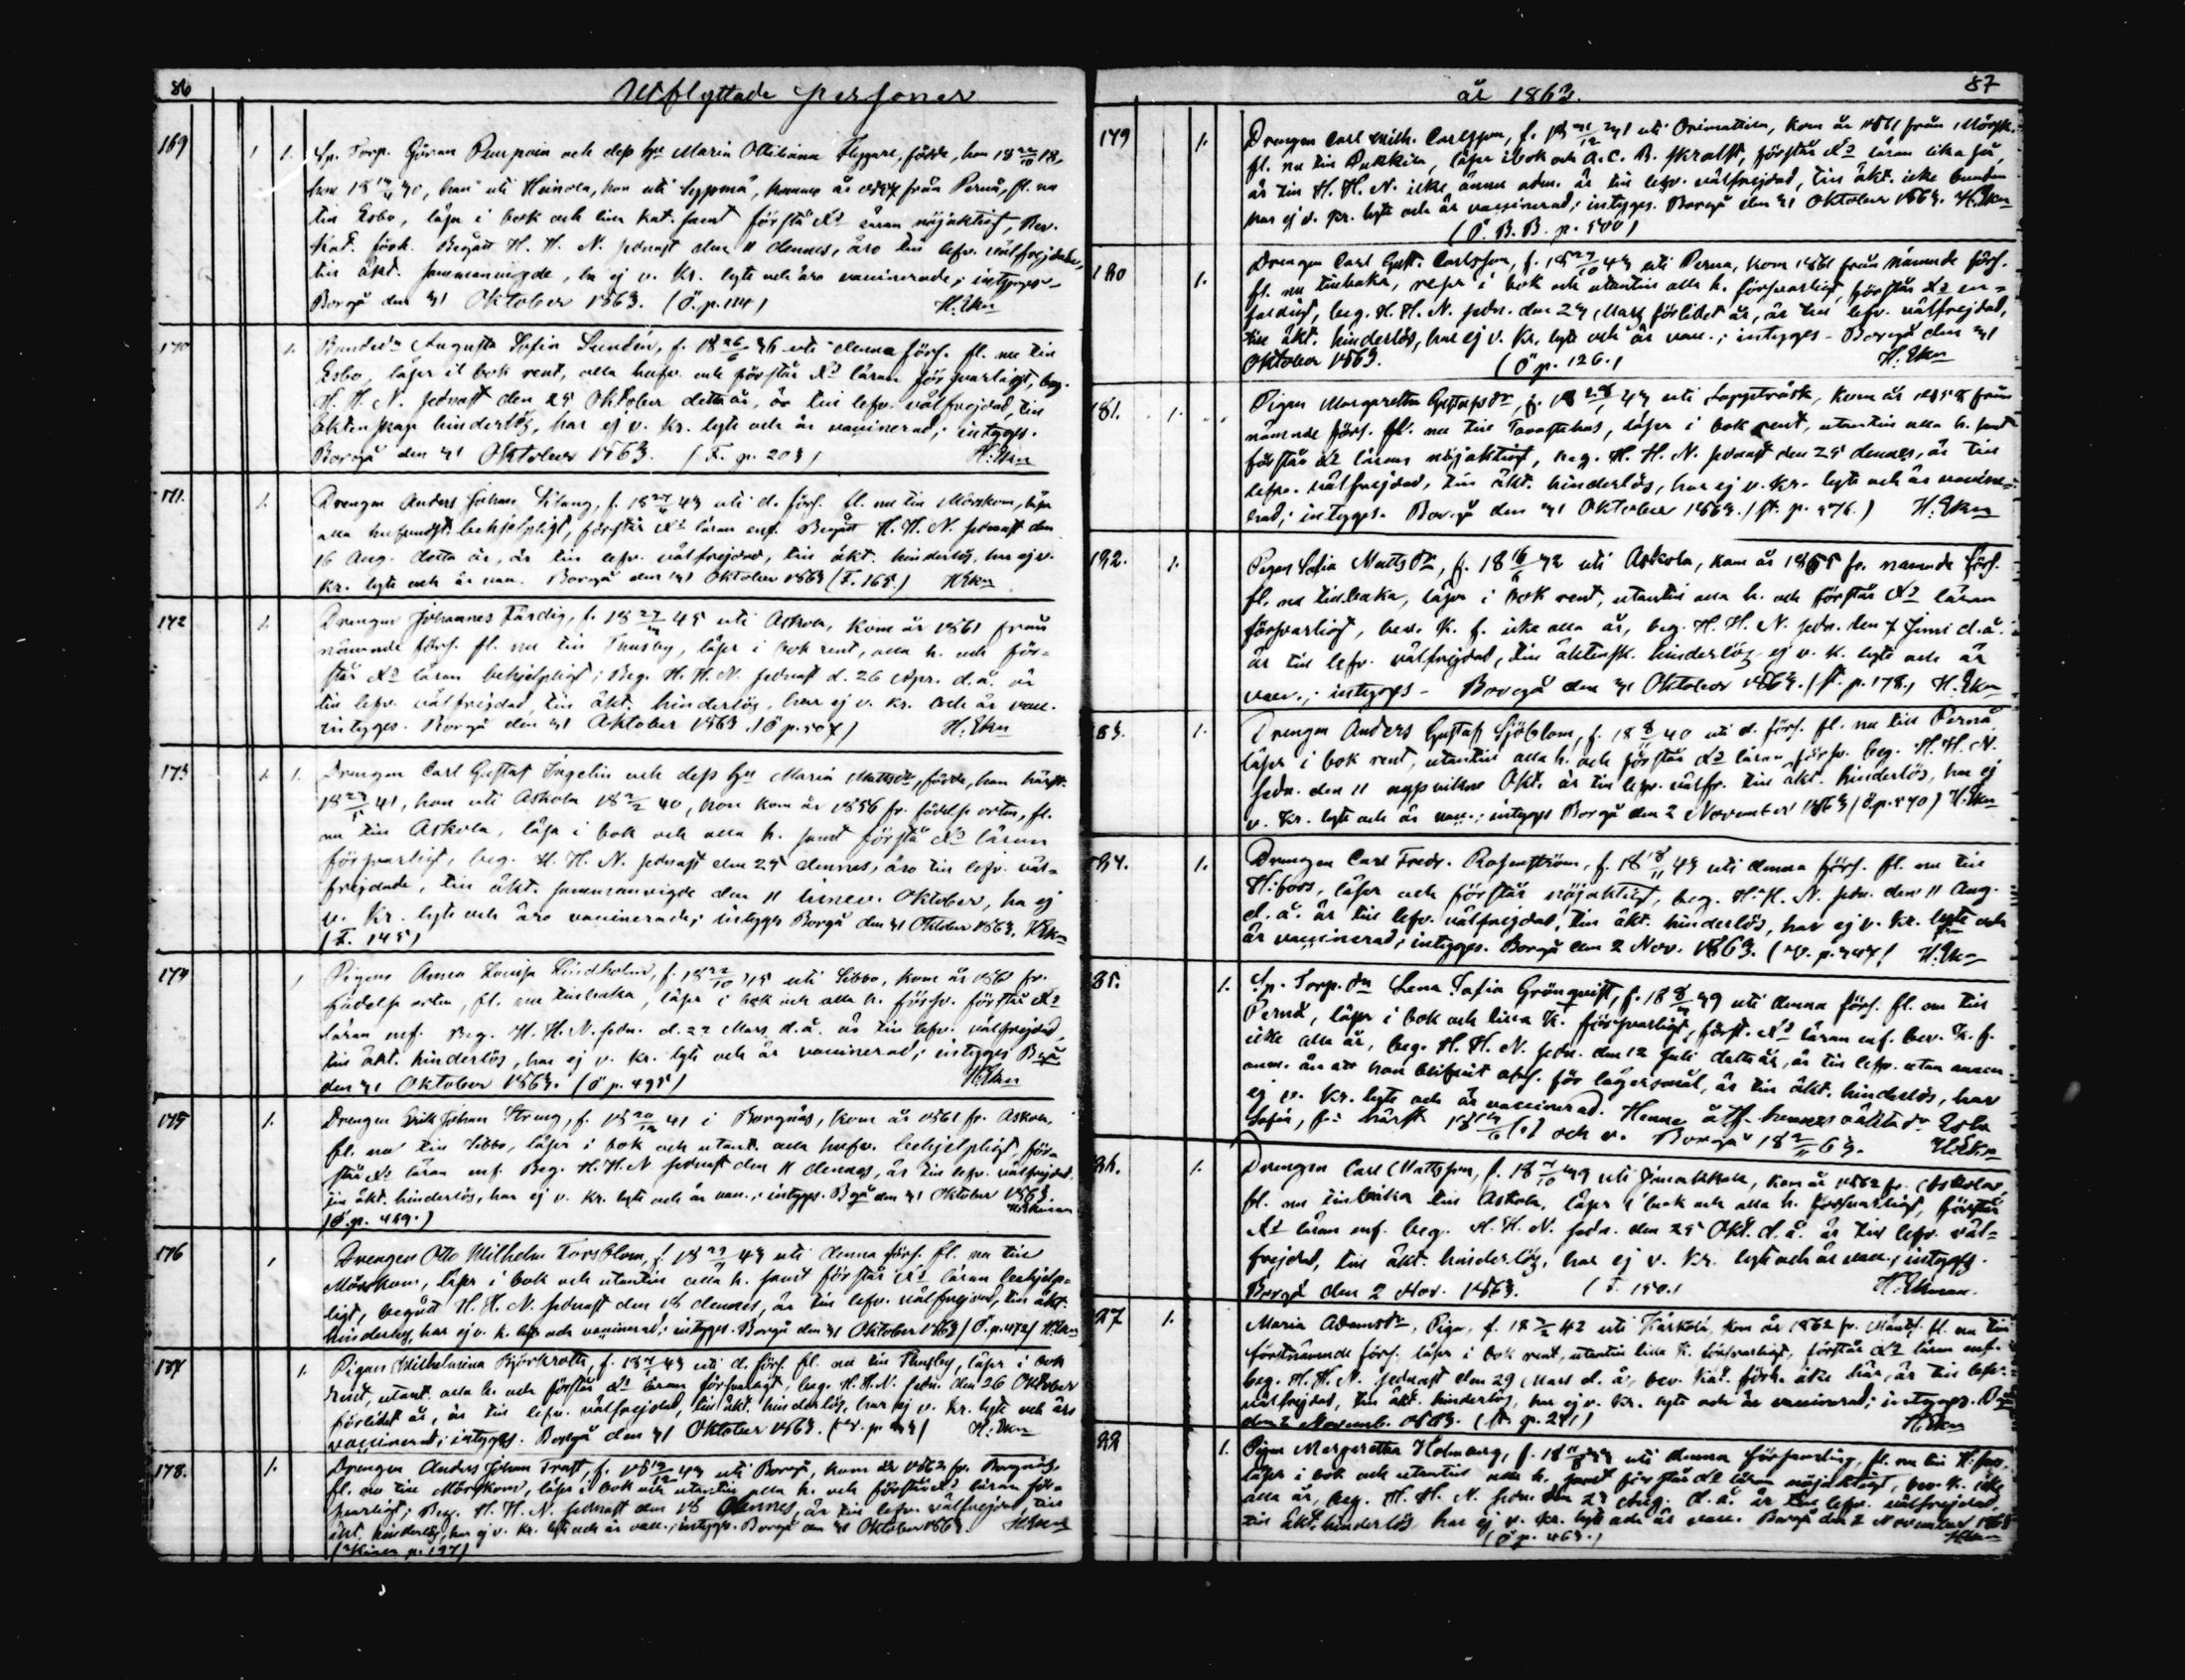 86
Utflyttade personer
169 1 1. Sp. Torp. Göran och dess hu Maria födde, han 18
hon 18 han uti Heinola, hon uti kommo år från Perno, fl. nu
till Esbo, läsa i bok och lilla kat. samt förstå Xd läran nöjaktigt, Bev.
kat. förh. Begått H. H. N. sednast den 11 dennes, äro till lefv. välfrejdade,
till äkt. sammanvigde, ha ej v. kr. lyte och äro vaccinerade; intygas
Borgå den 31 Oktober 1863. (Ö. p. 114) H: Ekm
170 1. Augusta Sofia Sundén, f. 18 26/6 36 uti denna förs. fl. nu till
Esbo, läser i bok rent, alla hufv. och förstår Xd läran försvarligt, beg.
H. H. N. sednast den 25 Oktober detta år, är till lefv. välfrejdad, till
äktenskap hinderlös, har ej v. kr. lyte och är vaccinerad; intygas.
Borgå den 31 Oktober 1863. (F. p. 203) H: Ekm
171. 1. Drengen Anders Johan f. 18 43 uti d. förs. fl. nu till Mörskom, läser
alla hufvudst. behjelpligt, förstår Xd läran enf. Begått H. H. N. sednast den
16 Aug. detta år, är till lefv. välfrejdad, till äkt. hinderlös, har ej v.
kr. lyte och är vacc. Borgå den 31 Oktober 1863 (F. 165.) H: Ekm
172 1. Drengen Johannes Färdig, f. 18 45 uti Askola, kom år 1861 från
nämnde förs. fl. nu till Thusby, läser i bok rent, alla h. och för=
står Xd läran behjelpligt; Beg. H. H. N. sednast d. 26 Apr. d. å. är
till lefv. välfrejdad, till äkt. hinderlös, har ej v. kr. och är vacc.
intygas. Borgå den 31 Oktober 1863 (Ö p. 507) H: Ekm
173 1. 1. Drengen Carl Gustaf Ingelin och dess hu Maria Mattsdr, födde, han härst.
18 41, hon uti Askola 18 40, hon kom år 1856 fr. födelse orten, fl.
nu till Askola, läsa i bok och alla h. samt förstå Xd läran
försvarligt, beg. H. H. N. sednast den 25 dennes, äro till lefv. väl=
frejdade, till äkt. sammanvigde den 11 Oktober, ha ej
v. kr. lyte och äro vaccinerade; intygas Borgå den 31 Oktober 1863. H: Ekm
(F. 145)
174 1 Pigan Anna Lovisa Lindholm, f. 18 22/10 uti Sibbo, kom år fr.
födelse orten, fl. nu tillbaka, läser i bok och alla h. försv. förstår Xd
läran enf. Beg. H. H. N. sedn. d. 22 Mars d. å. är till lefv. välfrejdad,
till äkt. hinderlös, har ej v. kr. lyte och är vaccinerad; intygas Bgå
den 31 Oktober 1863. (Ö p. 495) H: Ekm
175 1. Drengen Erik Johan Streng, f. 18 20/12 41 i Borgnäs, kom år 1861 fr. Askola,
fl. nu till Sibbo, läser i bok och utant. alla hufv. behjelpligt, för=
står Xd läran enf. Beg. H. H. N. sednast den 11 dennes, är till lefv. välfrejdad
till äkt. hinderlös, har ej v. kr. lyte och är vacc.; intygas. Bgå den 31 Oktober 1863.
(Ö. p. 489.) H: Ekman
176 1 Drengen Otto Wilhelm Forsblom, f. 18 43 uti denna förs. fl. nu till
Mörskom, läser i bok och utantill alla h. samt förstår Xd läran behjelp=
ligt, begått H. H. N. sednast den 18 dennes, är till lefv. välfrejdad, till äkt.
hinderlös, har ej v. k. lyte och vaccinerad; intygas. Borgå den 31 Oktober 1863 (Ö. p. 472) H: Ekm
177 1. Pigan Wilhelmina f. 18 43 uti d. förs. fl. nu till Thusby, läser i bok
rent, utant. alla h. och förstår Xd läran försvarligt, beg. H. H. N. sedn. den 26 Oktober
förlidet år, är till lefv. välfrejdad, till äkt. hinderlös, har ej v. kr. lyte och är
vaccinerad; intygas. Borgå den 31 Oktober 1863. H: Ekm
178. 1. Drengen Anders Johan Trast, f. 18 19/12 43 uti Borgå, kom år 1862 fr. Borgnäs,
fl. nu till Mörskom, läser i bok och utantill alla h. och förstår Xd läran för=
svarligt; Beg. H. H. N. sednast den 18 dennes, är till lefv. välfrejdad, till
äkt. hinderlös, har ej v. kr. lyte och är vacc.; intygas. Borgå den 31 Oktober 1863. H: Ekm
år 1863. 87
179 1. Drengen Carl Wilh. Carlsson, f. 18 uti Orimattila, kom år 1861 från Mörsk.
fl. nu till Pukkila, läser i bok och A. C. B. skralt, förstår Xd läran lika så,
är till H. H. N. icke ännu adm. är till lefv. välfrejdad, till äkt. icke bunden
har ej v. kr. lyte och är vaccinerad; intygas. Borgå den 31 Oktober 1863. H: Ekm
(Ö. B. B. p. 500)
180 1. Drengen Carl Gust. Carlsson, f. 18 27/10 43 uti Perno, kom 1861 från nämnde förs.
fl. nu tillbaka, läser i bok och utantill alla h. försvarligt, förstår Xd en=
faldigt, beg. H. H. N. sedn. den 23 Mars förlidet år, är till lefv. välfrejdad,
till äkt. hinderlös, har ej v. kr. lyte och är vacc.; intygas - Borgå den 31
Oktober 1863. (Ö p. 126.) H: Ekm
181. 1. Pigan Margaretha Gustafsdr, f. 18 28/1 43 uti Lappträsk, kom år 1858 från
nämnde förs. fl. nu till Tavastehus, läser i bok rent, utantill alla h. samt
förstår Xd läran nöjaktigt, beg. H. H. N. sednast den 25 dennes, är till
lefv. välfrejdad, till äkt. hinderlös, har ej v. kr. lyte och är vaccine=
rad; intygas. Borgå den 31 Oktober 1863. H: Ekm
182. 1. Pigan Sofia Mattsdr, f. 18 16/6 32 uti Askola, kom år 1855 fr. nämnde förs.
fl. nu tillbaka, läser i bok rent, utantill alla h. och förstår Xd läran
försvarligt, bev. K. f. icke alla år, beg. H. H. N. sedn. den 7 Juni d. å.
är till lefv. välfrejdad, till äktensk. hinderlös, ej v. k. lyte och är
vacc.; intygas - Borgå den 31 Oktober 1863. (A. p. 178.) H: Ekm
83. 1. Drengen Anders Gustaf Sjöblom, f. 18 8/11 40 uti d. förs. fl. nu till Pernå
läser i bok rent, utantill alla h. och förstår Xd läran försv. beg. H. H. N.
sedn. den 11 nyssvikne Okt. är till lefv. välfr. till äkt. hinderlös, har ej
v. kr. lyte och är vacc.; intygas Borgå den 2 November 1863 (Ö. p. 570) H: Ekm
84. 1. Drengen Carl Fredr. Rosenström, f. 18 18/11 43 uti denna förs. fl. nu till
H:fors, läser och förstår nöjaktigt, beg. H. H. N. sedn. den 11 Aug.
d. å. är till lefv. välfrejdad, till äkt. hinderlös, har ej v. kr. lyte och
är vaccinerad; intygas. Borgå den 2 Nov. 1863. H: Ekm
85. 1. Sp. Torp. dn Lena Sofia Grönqvist, f. 18 39 uti denna förs. fl. nu till
Pernå, läser i bok och lilla K. försvarligt, först. Xd läran enf. bev. K. f.
icke alla år, beg. H. H. N. sedn. den 12 Juli detta år, är till lefv. utan annan
anm. än att hon blifvit abs. för lägersmål, är till äkt. hinderlös, har
ej v. kr. lyte och är vaccinerad. Henne åtf. hennes oäkta dr Edla
Sofia, f. härst. och v. Borgå 18 2/11 63. H: Ekm
86. 1. Drengen Carl Mattsson, f. 18 39 uti Janakkala, kom år 1862 fr. Askola,
fl. nu tillbaka till Askola, läser i bok och alla h. försvarligt, förstår
Xd läran enf. beg. H. H. N. sedn. den 25 Okt. d. å. är till lefv. väl=
frejdad, till äkt. hinderlös, har ej v. kr. lyte och är vacc.; intygas.
Borgå den 2 Nov. 1863. (F. 150.) H: Ekman.
87 1. Maria Adamsdr, Piga, f. 18 42 uti Kärkölä, kom år 1862 fr. Mänts. fl. nu till
förstnämnde förs. läser i bok rent, utantill lilla K. försvarligt, förstår Xd läran enf.
beg. H. H. N. sednast den 29 Mars d. å., bev. kat. förh. icke här, är till lefv.
välfrejdad, till äkt. hinderlös, har ej v. kr. lyte och är vaccinerad; intygas. Bgå
den 2 Novemb. 1863. H: Ekm
88 1. Pigan Margaretha Holmberg, f. 18 uti denna församling, fl. nu till H:fors,
läser i bok och utantill alla h. samt förstår Xd läran nöjaktigt, bev. K. icke
alla år, beg. H. H. N. sedn. den 23 Aug. d. å. är till lefv. välfrejdad,
till äkt. hinderlös har ej v. kr. lyte och är vacc. Borgå den 2 November 1863
(Ö p. 463.) H: Ekm